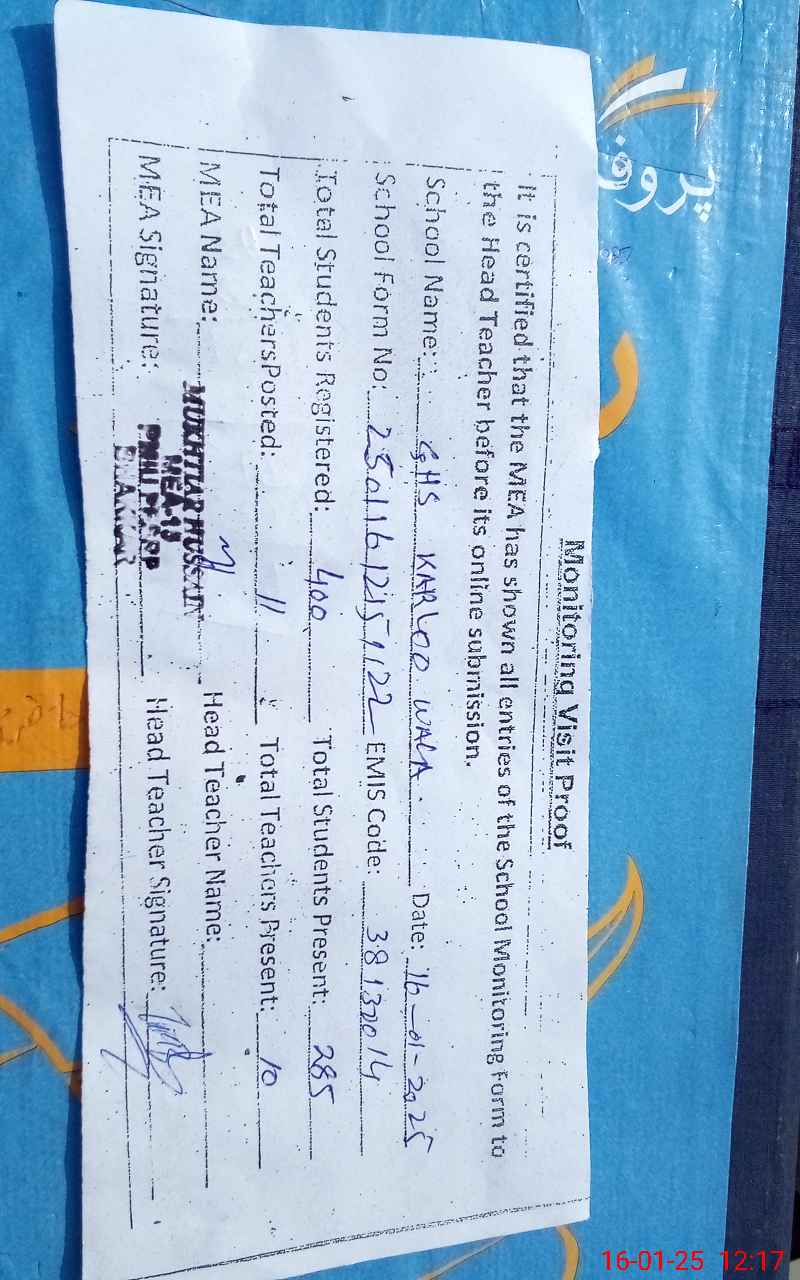 Monitoring Visit Proof
It is certified that the MEA has shown all entries of the School Monitoring Form to
the Head Teacher before its online submission.
School Name: GHS KARLOO WALA. Date: 16-01-2025
School Form No: 25011612151122 EMIS Code: 38130014
Total Students Registered: 400 Total Students Present: 285
Total Teachers Posted: 11 Total Teachers Present: 10
MEA Name: Head Teacher Name:
MUKHTIAR HUSSAIN
MEA-13
MEA Signature: Head Teacher Signature:
16-01-25 12:17